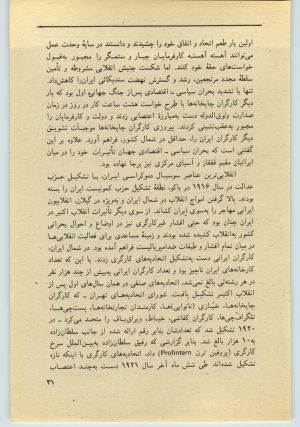 اولین بار طعم اتحاد و اتفاق خود را چشیدند و دانستند در سایهٔ وحدت عمل
می‌توانند آهسته آهسته کارفرمایان جبار و ستمگر را مجبور به‌قبول
خواست‌های حقهٔ خود کنند. اما شکست جنبش انقلابی مشروطه و تأمین
سلطهٔ مجدد مرتجعین، رشد و گسترش نهضت سندیکائی ایران را کاهش داد.
تنها با تشدید بحران سیاسی ـ اقتصادی پس از جنگ جهانی اول بود که بار
دیگر کارگران چاپخانه‌ها با طرح خواست هشت ساعت کار در روز در زمان
صدارت وثوق‌الدوله دست به‌مبارزهٔ اعتصابی زدند و دولت و کارفرمایان را
مجبور به‌عقب‌نشینی کردند. پیروزی کارگران چاپخانه‌ها موجبات تشویق
دیگر کارگران ایران را، حداقل در شمال کشور، فراهم آورد. علاوه بر این،
گفتنی است که بحران سیاسی ـ اقتصادی جهان تأثیرات خود را در میان
ایرانیان مقیم قفقاز و آسیای مرکزی نیز برجا نهاده بود.
انقلابی‌ترین عناصر سوسیال دموکراسی ایران، با تشکیل حزب
عدالت در سال ۱۹۱۶ در باکو، نطفهٔ تشکیل حزب کمونیست ایران را بسته
بودند. بالا گرفتن امواج انقلاب در شمال ایران و به‌ویژه در گیلان، انقلابیون
ایرانی مهاجر را به‌سوی ایران کشاند. از سوی دیگر تأثیرات انقلاب اکتبر در
ایران چنان بود که حتی اقشار غیرکارگری نیز در اوضاع و احوال بحرانی
کشور به‌انقلاب کشیده شده بودند و زمینهٔ مساعدی برای فعالیت انقلابی‌ها
در میان تمام اقشار و طبقات ضدامپریالیست فراهم آمده بود. در شمال ایران،
کارگران ایرانی دست به‌تشکیل اتحادیه‌های کارگری زدند. با این که تعداد
کارخانه‌های ایران ناچیز بود و تعداد کارگران ایرانی به‌بیش از چند هزار نفر
در هر رشته‌ئی بالغ نمی‌شد، اتحادیه‌های صنفی در همان سال‌های اول پس از
انقلاب اکتبر تشکیل یافت. شورای اتحادیه‌های تهران ـ که کارگران
چاپخانه‌ها، خبّازی (نانوایی)ها، کارمندان تجارتخانه‌ها، پست‌چی‌ها،
تلگراف‌چی‌ها، کارگران کفاشی، خیاط، و یراق‌باف را متحد می‌کرد ـ در
۱۹۲۰ تشکیل شد که تعدادشان بنابر رقم ارائه شده از جانب سلطان‌زاده
به‌۱۰ هزار بالغ شد. بنابر گزارشی که رفیق سلطان‌زاده به‌بین‌الملل سرخ
کارگری (پروفین ترن Profintern) داد، اتحادیه‌های کارگری با اینکه تازه
تشکیل شده‌اند طی شش ماه آخر سال ۱۹۲۱ دست به‌چند اعتصاب
۳۱